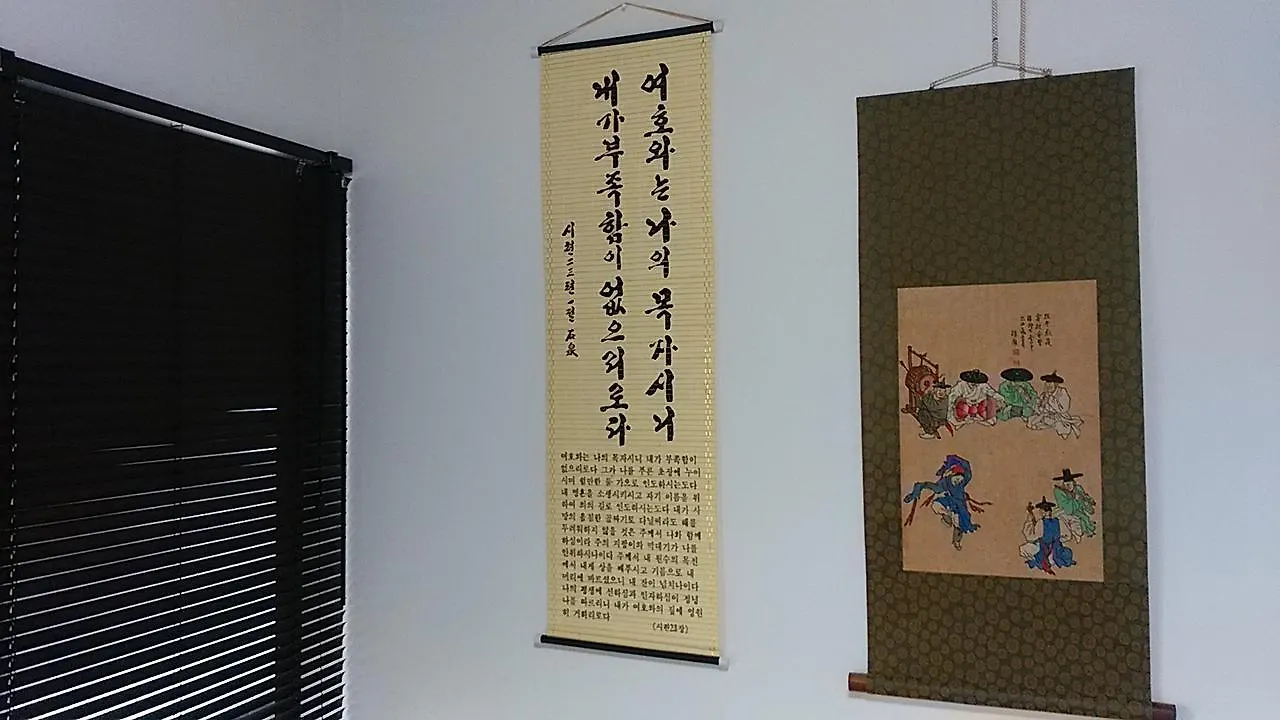 여호와는 나의 목자시니
내가 부족함이 없으리로다
시편 二三편 一절 石泉
여호와는 나의 목자시니 내가 부족함이
없으리로다 그가 나를 푸른 초장에 누이
시며 쉴만한 물 가으로 인도하시는도다
내 영혼을 소생시키시고 자기 이름을 위
하여 의의 길로 인도하시는도다 내가 사
망의 음침한 골짜기로 다닐찌라도 해를
두려워하지 않을 것은 주께서 나와 함께
하심이라 주의 지팡이와 막대기가 나를
안위하시나이다 주께서 내 원수의 목전
에서 내게 상을 베푸시고 기름으로 내
머리에 바르셨으니 내 잔이 넘치나이다
나의 평생에 선하심과 인자하심이 정녕
나를 따르리니 내가 여호와의 집에 영원
히 거하리로다
(시편23장)